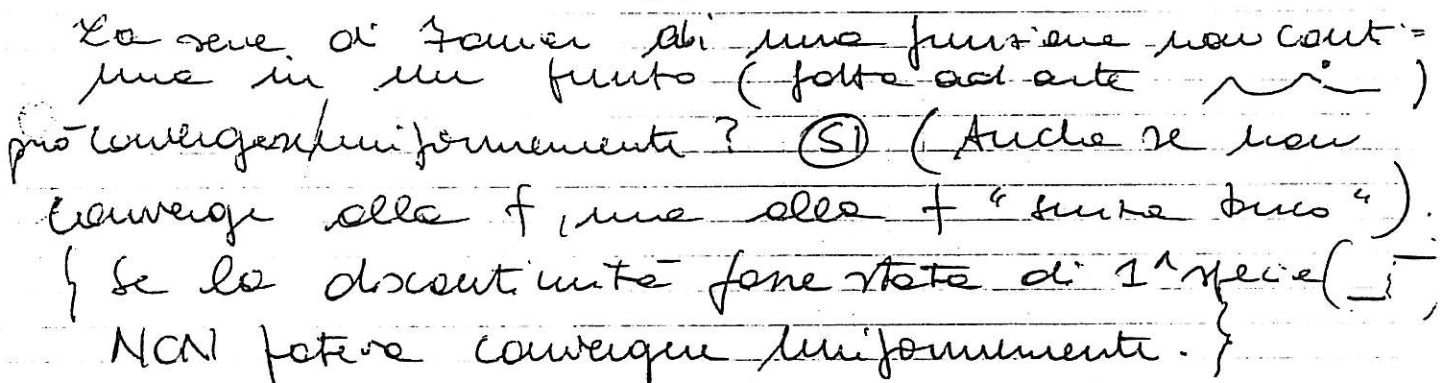 La serie di Fourier di una funzione non conti=
nua in un punto (fatta ad arte )
può convergere uniformemente? SI (Anche se non
converge alla f, ma alla f "senza buco").
{ Se la discontinuità fosse stata di 1ª specie (
NON poteva convergere uniformemente. }